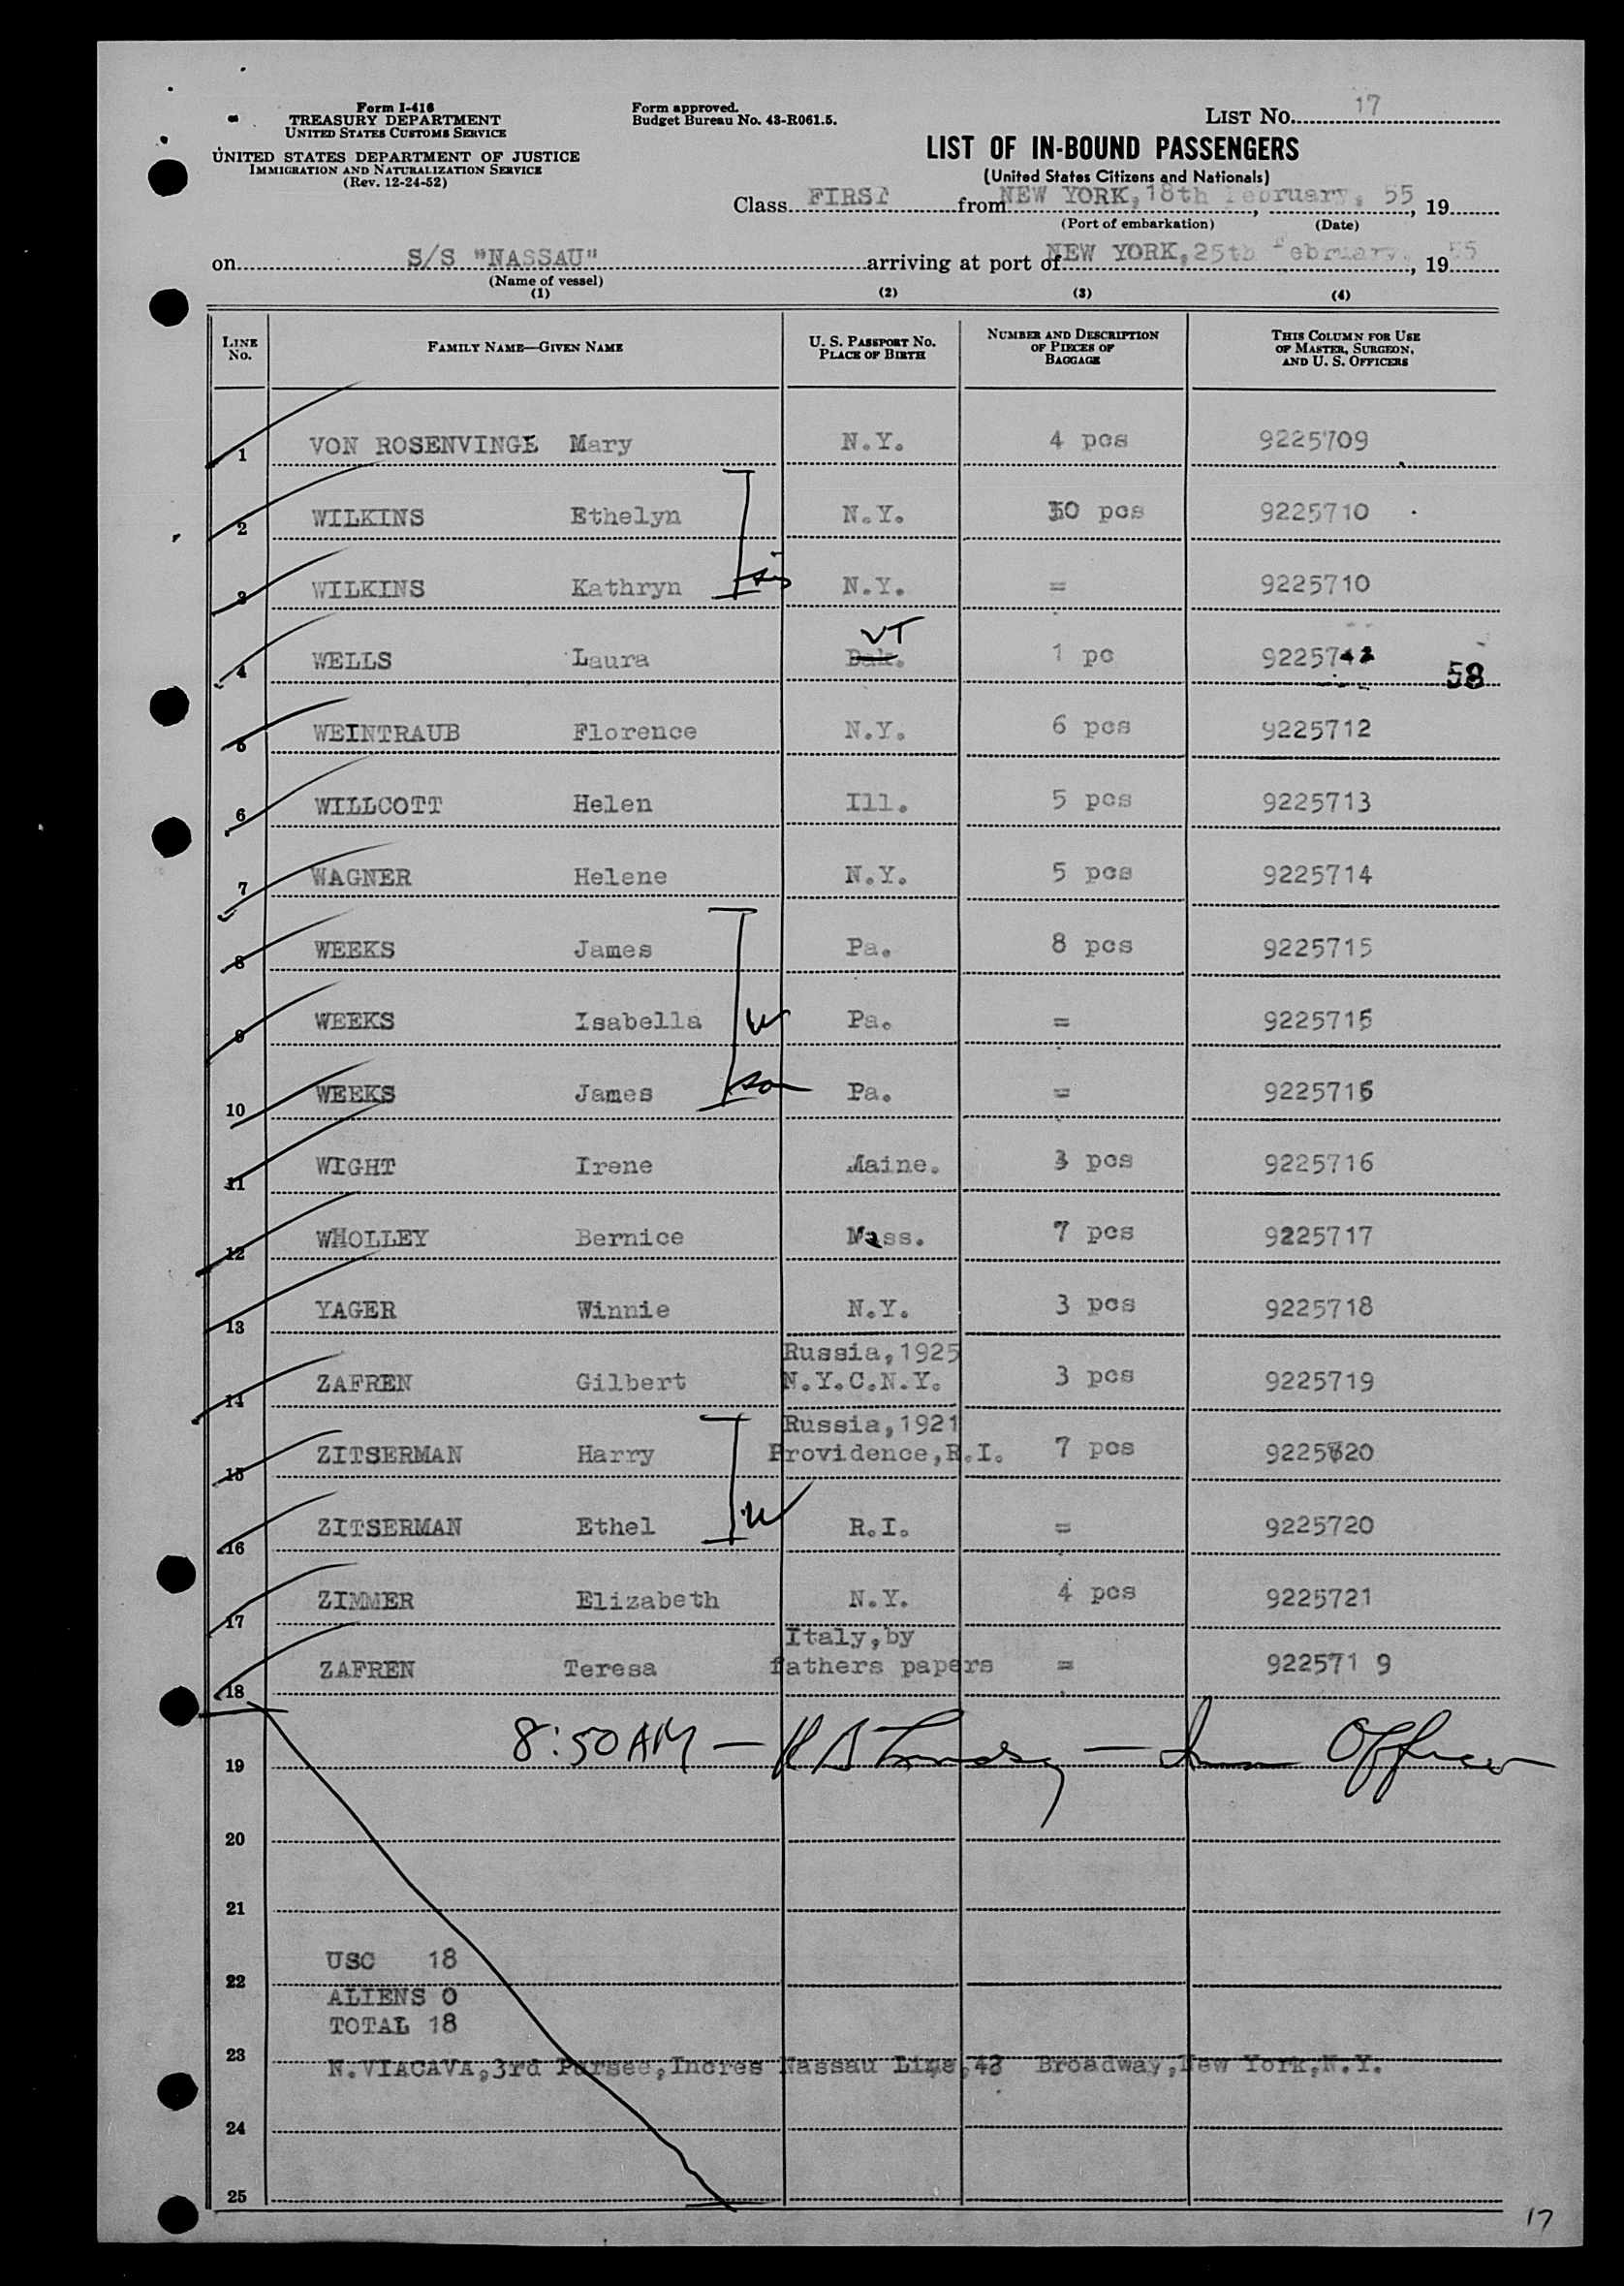 Form I-416
TREASURY DEPARTMENT
UNITED STATES CUSTOMS SERVICE
UNITED STATES DEPARTMENT OF JUSTICE
IMMIGRATION AND NATURALIZATION SERVICE
(Rev. 12-24-52)
Form approved.
Budget Bureau No. 43-R061.5.
LIST No. 17
LIST OF IN-BOUND PASSENGERS
(United States Citizens and Nationals)
Class FIRST from NEW YORK, 18th February, 55, 19
(Port of embarkation) (Date)
on S/S "NASSAU" arriving at port of NEW YORK, 25th February, 1955
(Name of vessel)
(1) (2) (3) (4)
LINE No. FAMILY NAME—GIVEN NAME U. S. PASSPORT NO. PLACE OF BIRTH NUMBER AND DESCRIPTION OF PIECES OF BAGGAGE THIS COLUMN FOR USE OF MASTER, SURGEON, AND U. S. OFFICERS
1 VON ROSENVINGE Mary N.Y. 4 pcs 9225709
2 WILKINS Ethelyn N.Y. 10 pcs 9225710
3 WILKINS Kathryn sis N.Y. = 9225710
VT
4 WELLS Laura Dak. 1 pc 92257 58
5 WEINTRAUB Florence N.Y. 6 pcs 9225712
6 WILLCOTT Helen Ill. 5 pcs 9225713
7 WAGNER Helene N.Y. 5 pcs 9225714
8 WEEKS James Pa. 8 pcs 9225715
9 WEEKS Isabella W Pa. = 9225715
10 WEEKS James son Pa. = 9225715
11 WIGHT Irene Maine. 3 pcs 9225716
12 WHOLLEY Bernice Mass. 7 pcs 9225717
13 YAGER Winnie N.Y. 3 pcs 9225718
Russia, 1925
14 ZAFREN Gilbert N.Y.C.N.Y. 3 pcs 9225719
Russia, 1921
15 ZITSERMAN Harry Providence, R.I. 7 pcs 9225720
16 ZITSERMAN Ethel W R.I. = 9225720
17 ZIMMER Elizabeth N.Y. 4 pcs 9225721
Italy, by
18 ZAFREN Teresa fathers papers = 922571 9
19 8:50 AM — — Officer
20
21
USC 18
22
ALIENS 0
TOTAL 18
23
N. VIACAVA, 3rd Purser, Incres Nassau Line, 43 Broadway, New York, N.Y.
24
25
17